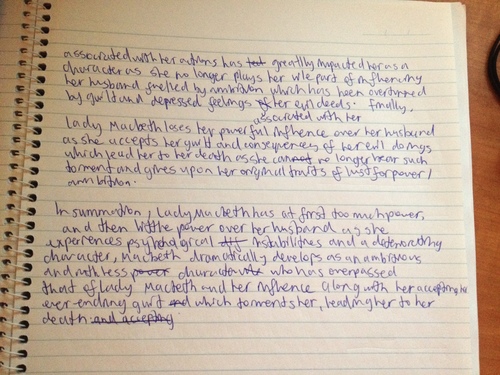 associated with her actions has greatlly impacted her as a
character as she no longer plays her role part of influencing
her husband fuelled by ambition which has been overturned
by guilt and depressed feelings of her evil deeds. Finally,
associated with her
Lady Macbeth loses her powerful influence over her husband
as she accepts her guilt and consequences of her evil doings
which lead her to her death as she cannot no longer bear such
torment and gives upon her original traits of lust for power/
ambition.
In summation, Lady Macbeth has at first too much power,
and then little power over her husband as she
experiences psychological instabilities and a deteriorating
character, Macbeth dramatically develops as an ambitious
and ruthless power character who has overpassed
that of lady Macbeth and her influence along with her accepting her
ever-ending guilt and which torments her, leading her to her
death and accepting